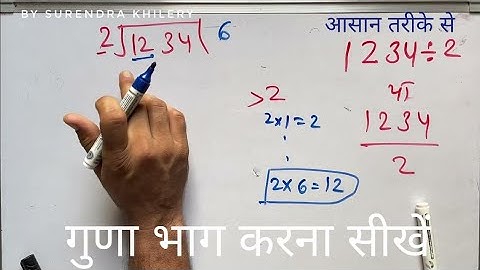 BY SURENDRA KHILERY
आसान तरीके से
2)1234(6
1234÷2
या
1234
2
>2
2×1=2
2×6=12
गुणा भाग करना सीखें